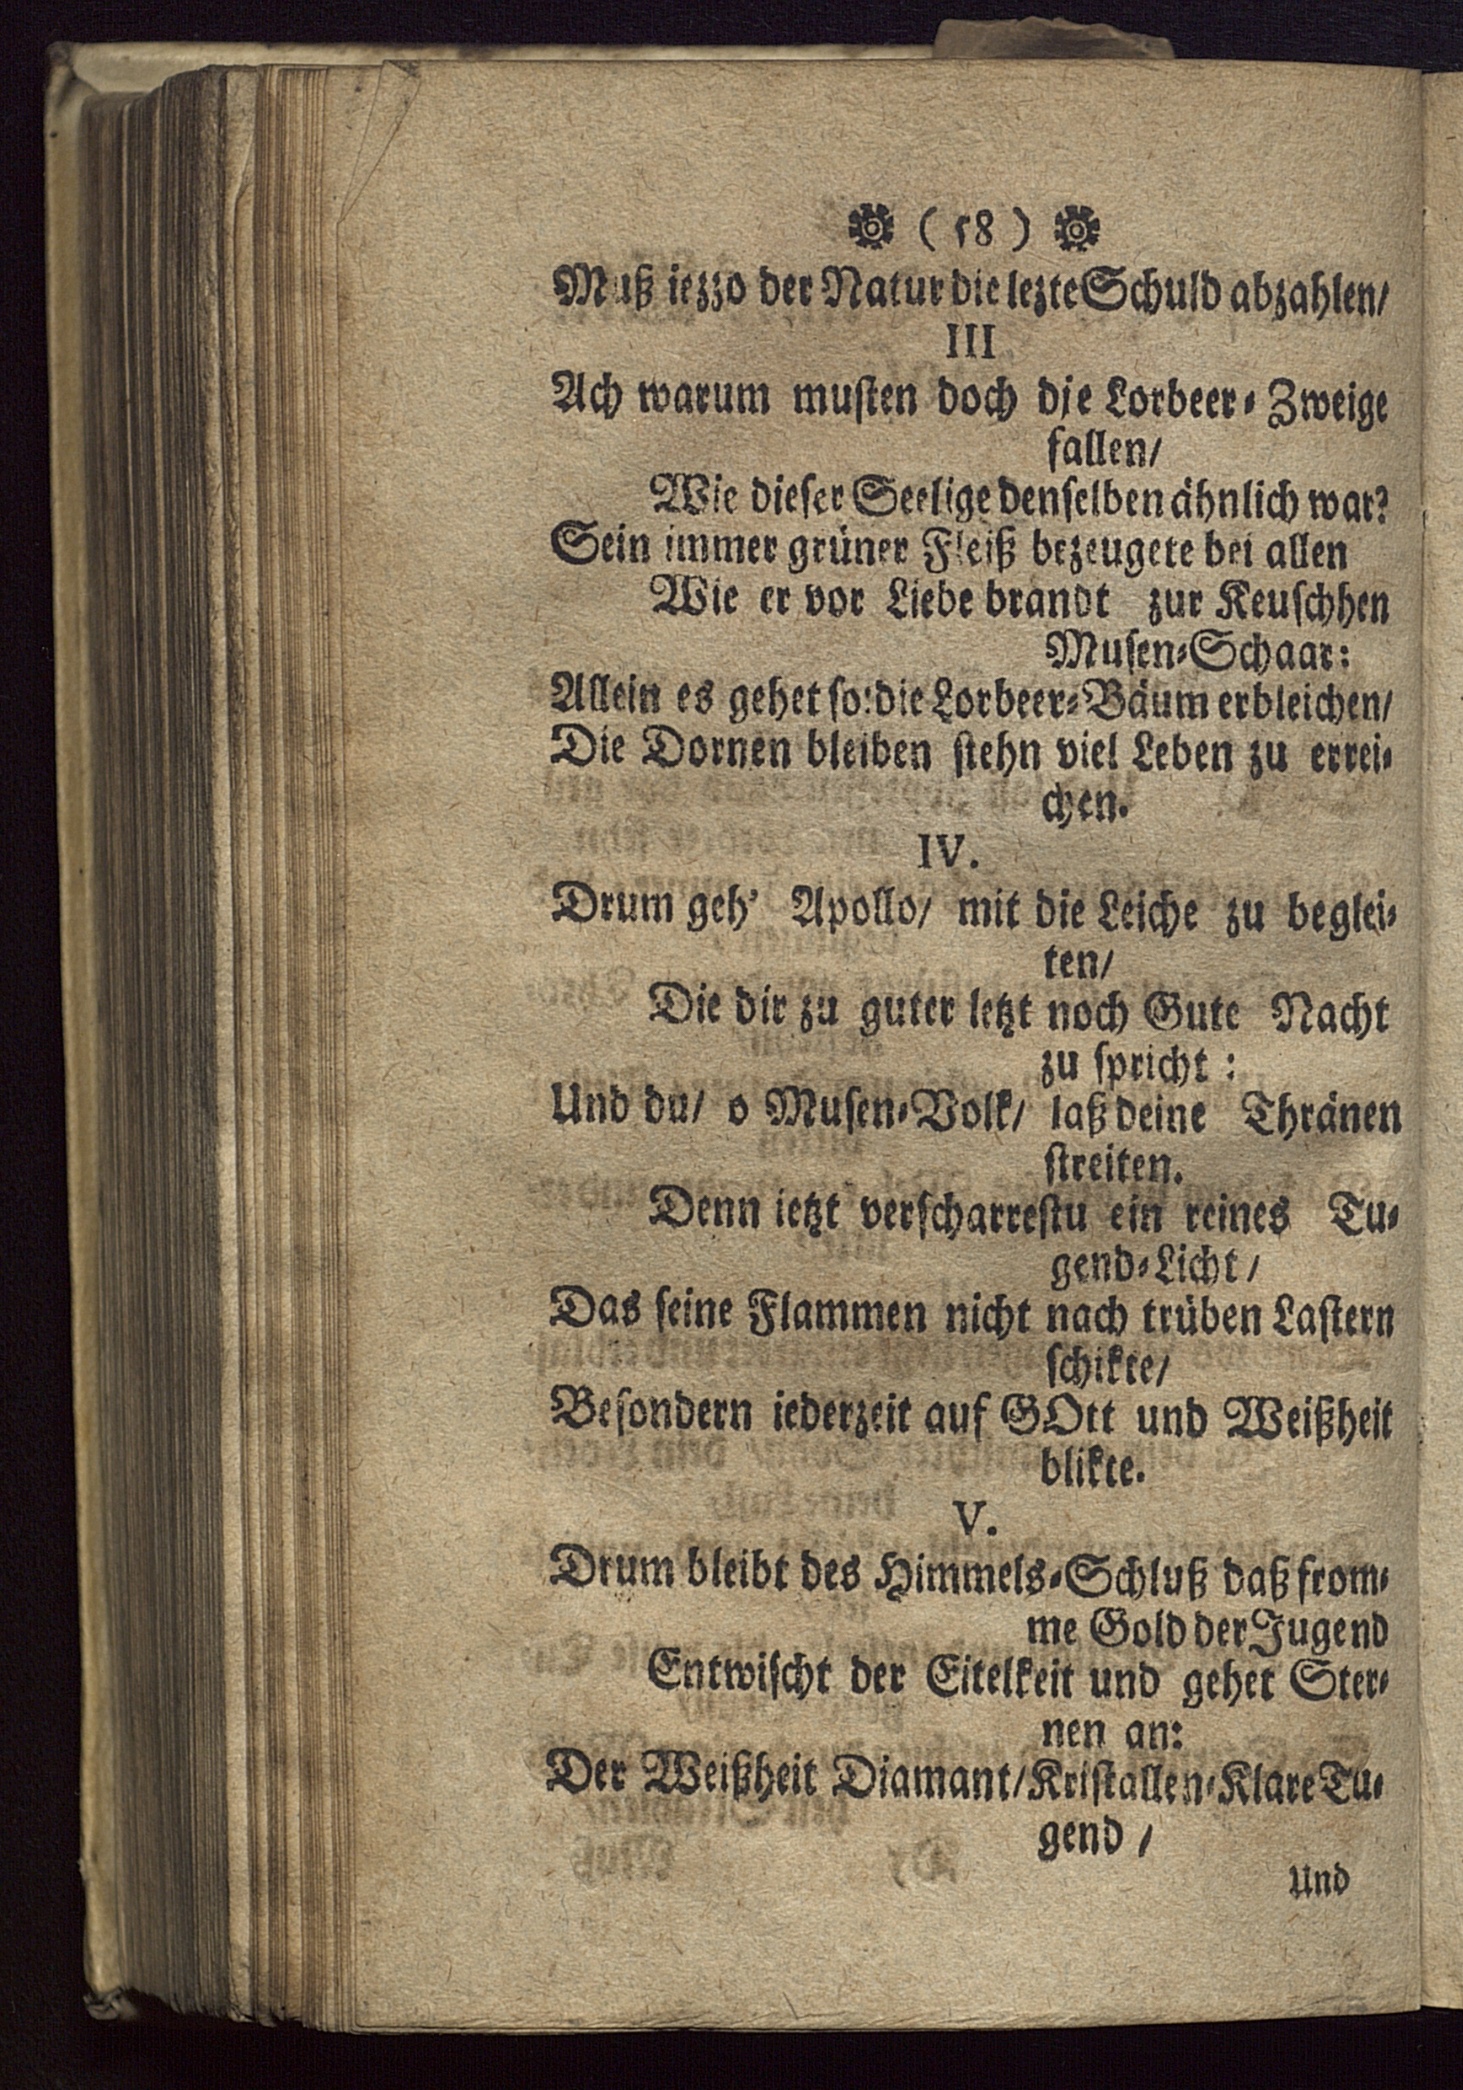 ( 58 )
Muß iezzo der Natur die lezte Schuld abzahlen/
III
Ach warum musten doch die Lorbeer-Zweige
fallen/
Wie dieser Seelige denselben ähnlich war?
Sein immer grüner Fleiß bezeugete bei allen
Wie er vor Liebe brandt zur Keuschhen
Musen-Schaar:
Allein es gehet so: die Lorbeer-Bäum erbleichen/
Die Dornen bleiben stehn viel Leben zu errei-
chen.
IV.
Drum geh' Apollo/ mit die Leiche zu beglei-
ten/
Die dir zu guter letzt noch Gute Nacht
zu spricht :
Und du/ o Musen-Volk/ laß deine Thränen
streiten.
Denn ietzt verscharrestu ein reines Tu-
gend-Licht /
Das seine Flammen nicht nach trüben Lastern
schikte/
Besondern iederzeit auf GOtt und Weißheit
blikte.
V.
Drum bleibt des Himmels-Schluß daß from-
me Gold der Jugend
Entwischt der Eitelkeit und gehet Ster-
nen an:
Der Weißheit Diamant/ Kristallen-Klare Tu-
gend /
Und